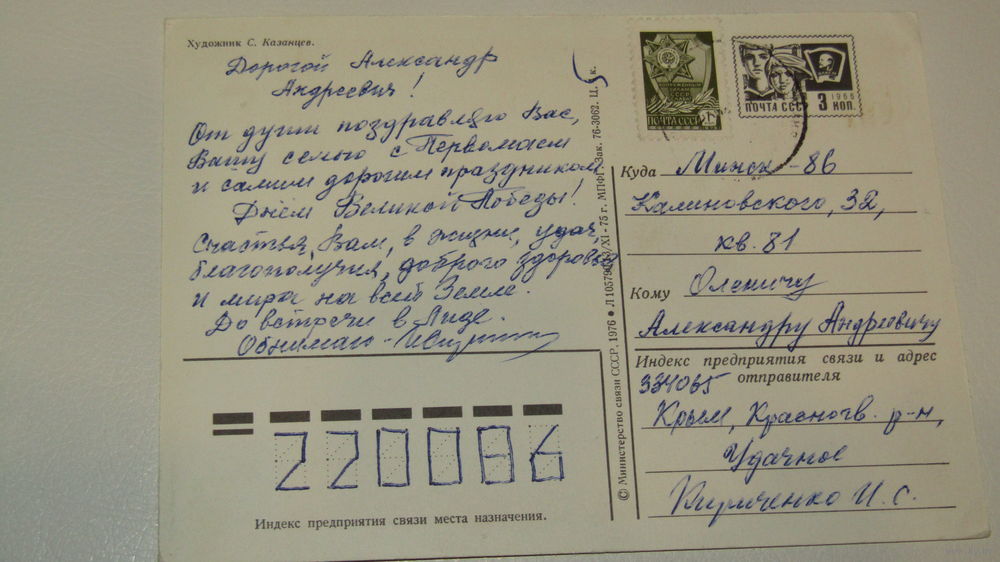 Художник С. Казанцев.
Дорогой Александр
Андреевич!
От души поздравляю Вас,
Вашу семью с Первомаем
и самым дорогим праздником
Днём Великой Победы!
Счастья, Вам, в жизни, удач,
благополучия, доброго здоровья
и мира на всей Земле.
До встречи в Лиде.
Обнимаю -
© Министерство связи СССР. 1976 ● Л 10579 /XI-75 г. МПФГ. Зак. 76-3062. Ц. к.
ПОЧТА СССР
1966
ПОЧТА СССР 3 КОП.
Куда Минск-86
Калиновского, 32,
кв. 81
Кому Оленичу
Александру Андреевичу
Индекс предприятия связи и адрес
отправителя
334065
Крым, Красногв. р-н,
Удачное
Кириченко И. С.
220086
Индекс предприятия связи места назначения.